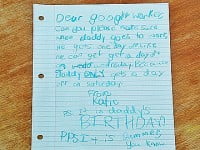 Dear google worker,
Can you please make sure
when daddy goes to work,
he gets one day off. Like
he can get a day off
on wednesday. Because
daddy ONLY gets a day
off on saturday.
From,
Katie
P.S. It is daddy's
BIRTHDAY!
P.P.S. It is summer,
you know